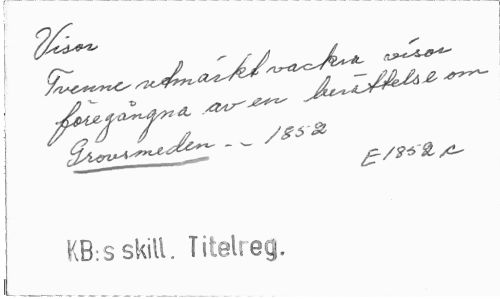 Visor
Tvenne utmärkt vackra visor
föregångna av en berättelse om
Grovsmeden -- 1852
E1852c
KB:s skill. Titelreg.